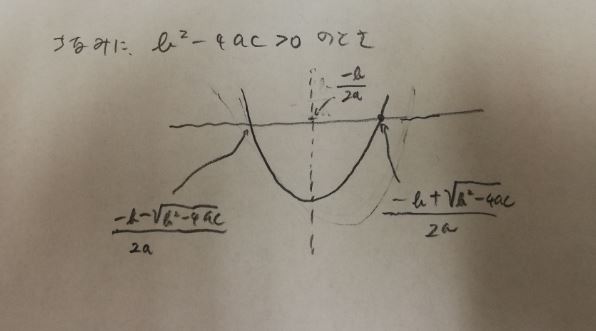 ちなみに、b²-4ac>0 のとき
-b/2a
(-b-√(b²-4ac))/2a
(-b+√(b²-4ac))/2a